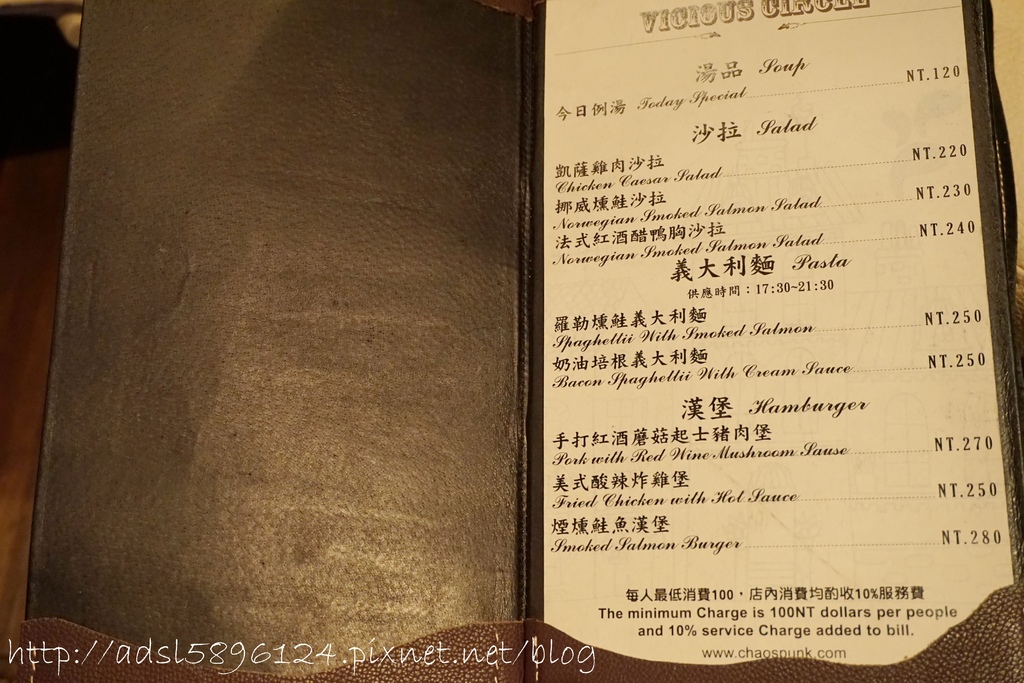 VICIOUS CIRCLE
湯品 Soup
今日例湯 Today Special NT.120
沙拉 Salad
凱薩雞肉沙拉
Chicken Caesar Salad NT.220
挪威燻鮭沙拉
Norwegian Smoked Salmon Salad NT.230
法式紅酒醋鴨胸沙拉
Norwegian Smoked Salmon Salad NT.240
義大利麵 Pasta
供應時間：17:30~21:30
羅勒燻鮭義大利麵
Spaghettii With Smoked Salmon NT.250
奶油培根義大利麵
Bacon Spaghettii With Cream Sauce NT.250
漢堡 Hamburger
手打紅酒蘑菇起士豬肉堡
Pork with Red Wine Mushroom Sause NT.270
美式酸辣炸雞堡
Fried Chicken with Hot Sauce NT.250
煙燻鮭魚漢堡
Smoked Salmon Burger NT.280
每人最低消費100，店內消費均酌收10%服務費
The minimum Charge is 100NT dollars per people
and 10% service Charge added to bill.
www.chaospunk.com
http://adsl5896124.pixnet.net/blog